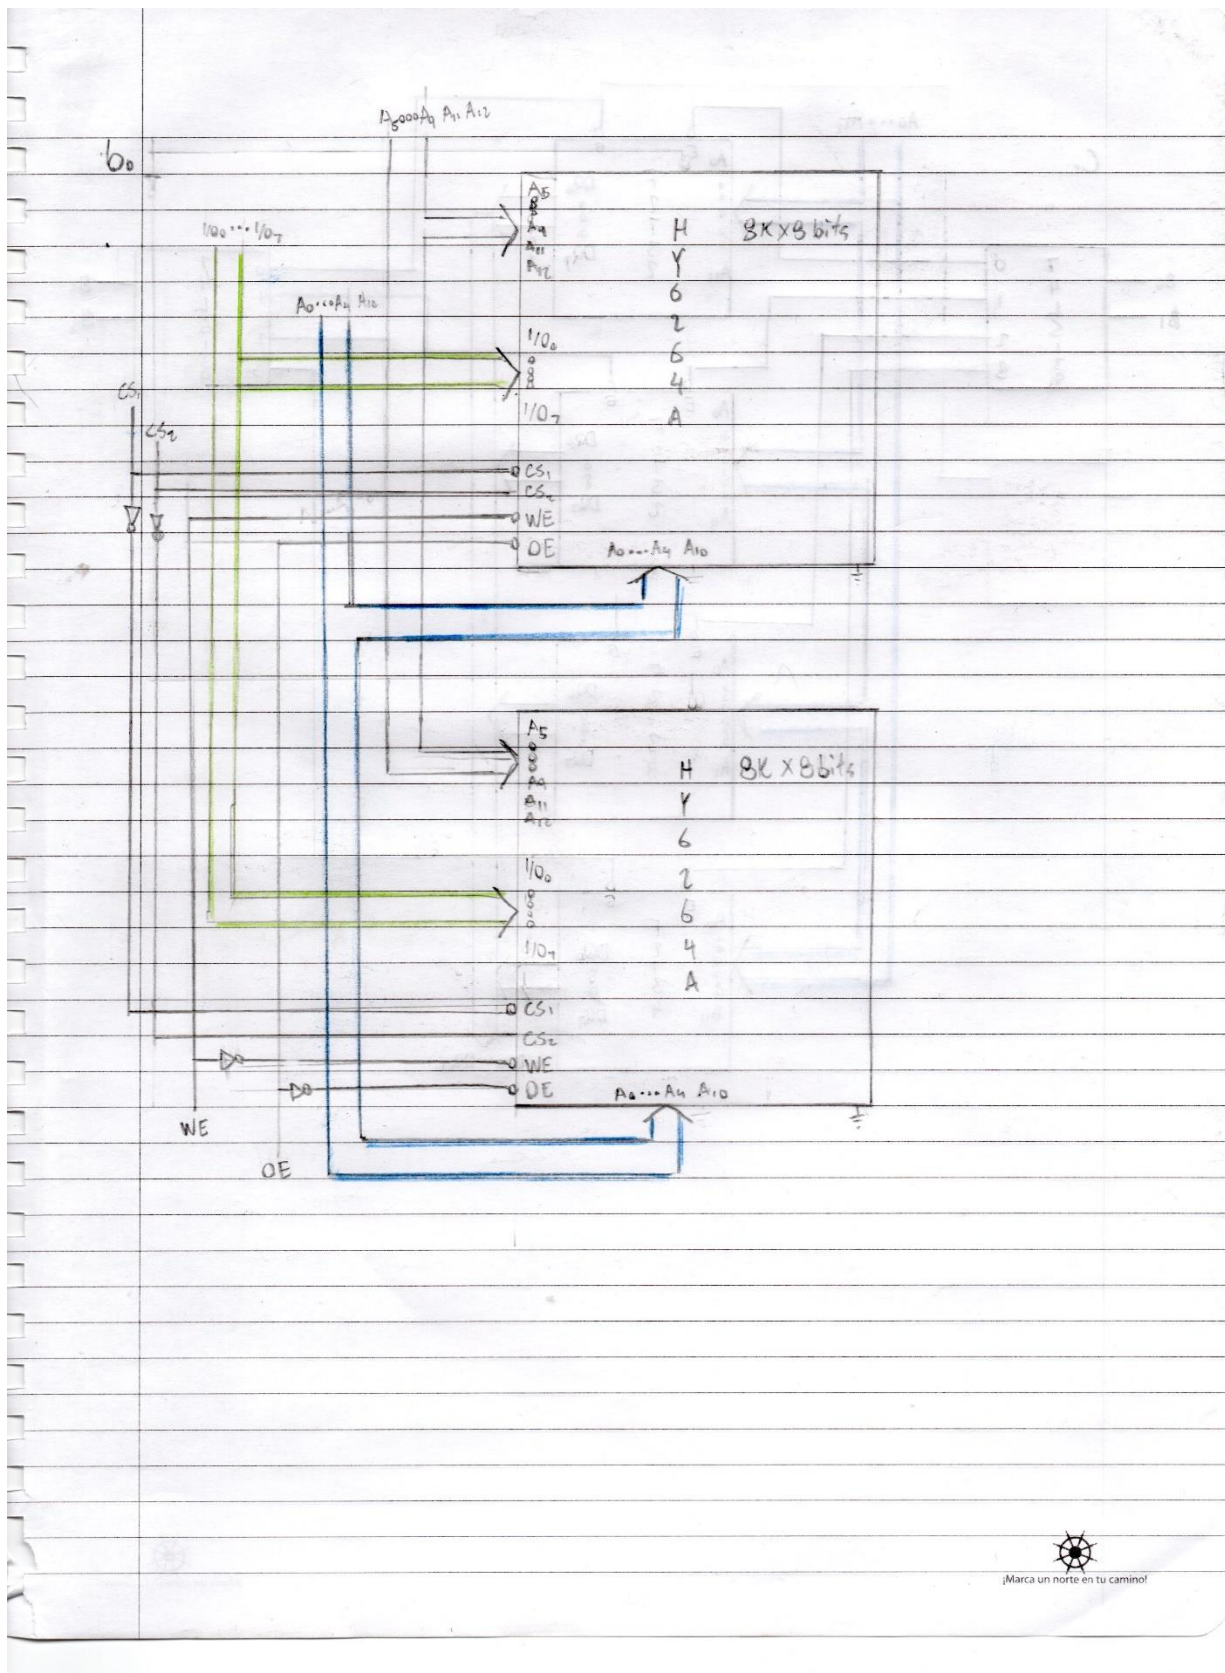 A5ooo A9 A11 A12
b.
I/O0 ... I/O7
A0...A4 A10
CS1
CS2
A5
A9
A11
A12
I/O0
I/O7
CS1
CS2
WE
OE
A0...A4 A10
H
Y
6
2
6
4
A
8K x 8 bits
A5
A9
A11
A12
I/O0
I/O7
CS1
CS2
WE
OE
A0...A4 A10
H
Y
6
2
6
4
A
8K x 8 bits
WE
OE
¡Marca un norte en tu camino!